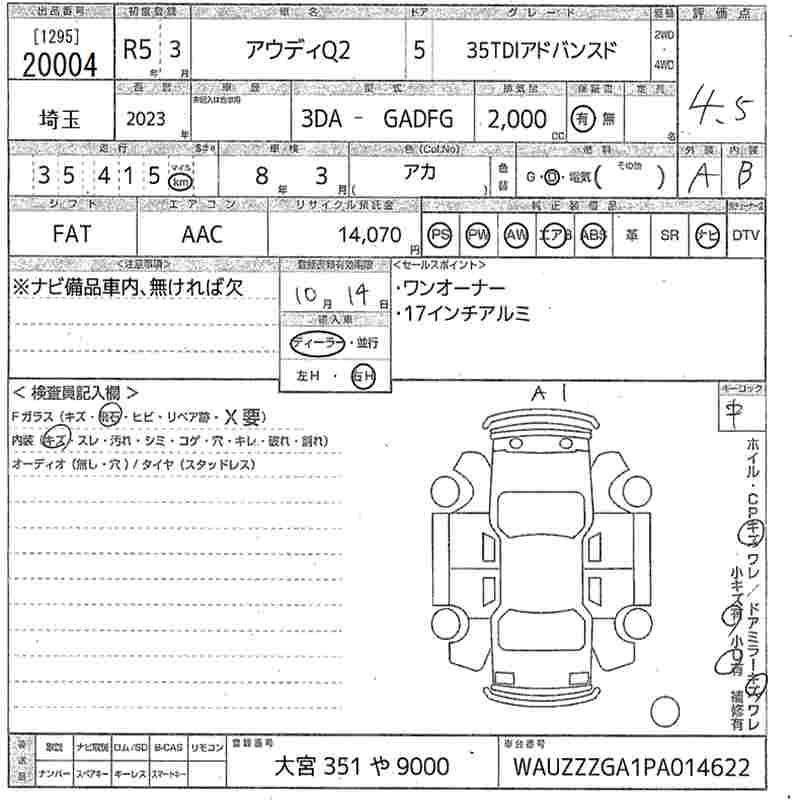 出品番号 初度登録 車名 ドア グレード 装備 評価点
[1295]
20004 R5年 3月 アウディQ2 5 35TDIアドバンスド 2WD・4WD 4.5
車歴 型式 排気量 保証書 定員
埼玉 2023年 3DA - GADFG 2,000cc 有・無 名
走行 車検 色(Col.No) 色替 燃料 外装 内装
35,415 マイル km 8年 3月 アカ ( ) G・D・電気( その他 ) A B
シフト エアコン リサイクル預託金 純正装備品
FAT AAC 14,070円 PS PW AW エアB ABS 革 SR ナビ DTV
<注意事項> 登録書類有効期限 <セールスポイント>
※ナビ備品車内、無ければ欠 10月 14日 ・ワンオーナー
・17インチアルミ
輸入車
ディーラー・並行
左H・右H
<検査員記入欄> A1 キーロック
Fガラス (キズ・飛石・ヒビ・リペア跡・X要) 中
内装 (キズ・スレ・汚れ・シミ・コゲ・穴・キレ・破れ・割れ)
オーディオ (無し・穴) / タイヤ (スタッドレス)
ホイル・CPキズワレ/ドアミラーキズワレ
小キズ有/小凹有 補修有
後送品 取説 ナビ取説 ロム/SD B-CAS リモコン 登録番号 車台番号
ナンバー スペアキー キーレス スマートキー 大宮 351 や 9000 WAUZZZGA1PA014622